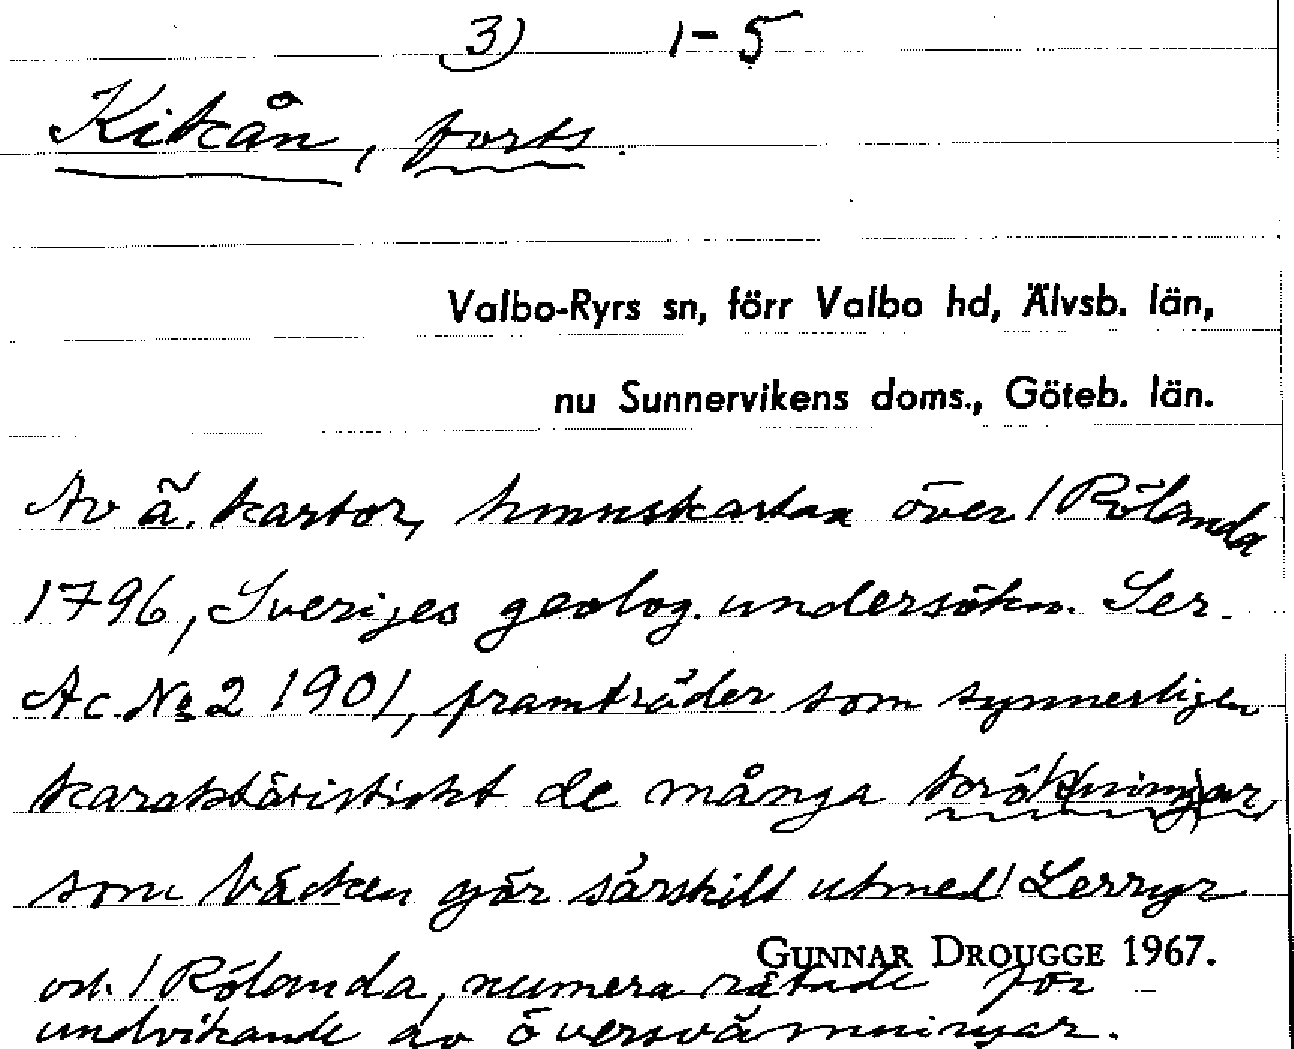 3) 1-5
Kikån, forts.
Valbo-Ryrs sn, förr Valbo hd, Älvsb. län,
nu Sunnervikens doms., Göteb. län.
Av ä. kartor, över / Rölanda
1796, Sveriges geolog. undersökn. Ser.
Ac No 2 1901, framträder som synnerligen
karaktäristiskt de många krökningar,
som bäcken gör särskilt utmed / Lerryr
och / Rölanda, numera rätade för
undvikande av översvämningar.
GUNNAR DROUGGE 1967.